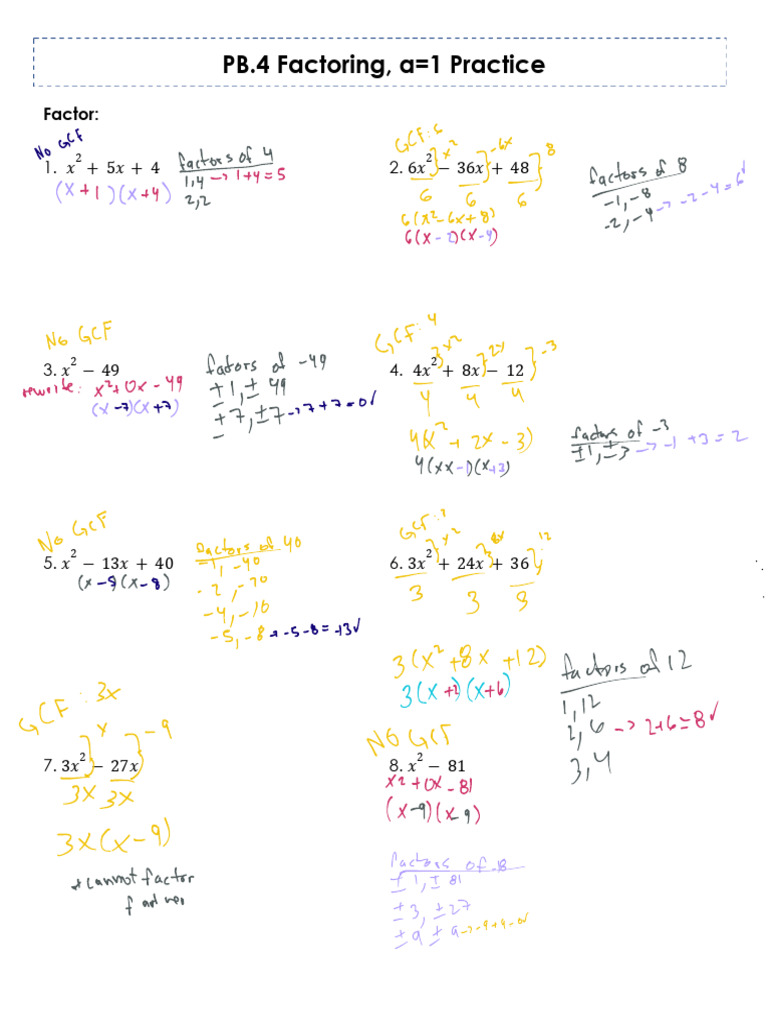 PB.4 Factoring, a=1 Practice
Factor:
No GCF
1. x² + 5x + 4
(x+1)(x+4)
factors of 4
1,4 → 1+4=5
2,2
GCF: 6
2. 6x² − 36x + 48
6 6 6
x² -6x 8
6(x²-6x+8)
6(x-2)(x-4)
factors of 8
-1,-8
-2,-4 → -2-4=6✓
No GCF
3. x² − 49
rewrite: x²+0x-49
(x-7)(x+7)
factors of -49
±1, ± 49
±7, ±7 → 7+7=0✓
GCF: 4
4. 4x² + 8x − 12
4 4 4
x² 2x -3
4(x² + 2x - 3)
4(xx-1)(x+3)
factors of -3
±1, ±3 → -1 +3 = 2
No GCF
5. x² − 13x + 40
(x-5)(x-8)
factors of 40
-1, -40
-2, -20
-4, -10
-5, -8 → -5-8 = -13✓
GCF:
6. 3x² + 24x + 36
3 3 3
x² 8x 12
3(x² +8x +12)
3(x+2)(x+6)
factors of 12
1,12
2,6 → 2+6=8✓
3,4
GCF: 3x
7. 3x² − 27x
3x 3x
x -9
3x(x-9)
*cannot factor
NO GCF
8. x² − 81
x²+0x-81
(x-9)(x-9)
factors of -8
±1, ± 81
±3, ±27
±9 ± 9 → -9+9=0✓